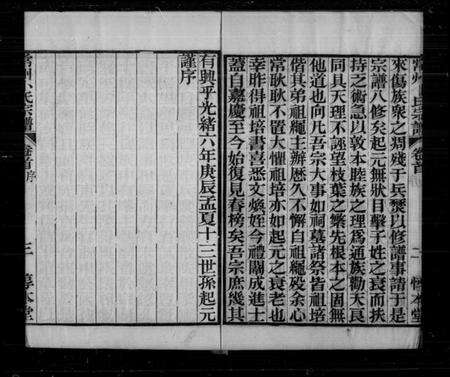 來傷族衆之凋殘于兵燹以修譜事請于是
宗譜八修矣起元無狀目擊子姓之衰而扶
持之術急以敦本睦族之理爲通族勸天良
同具天理不誣望枝葉之繁先根本之固無
他道也向凡吾宗大事如祠墓諸祭皆祖培
偕其弟祖繩主辦歷久不懈自祖繩歿余心
常耿耿不大懼祖培亦如起元之衰老也
幸昨得祖培書喜悉文煥姪今禮闈成進士
蓋自嘉慶至今始復見春榜矣吾宗庶幾其
惇本堂
有興乎光緒六年庚辰孟夏十三世孫起元
謹序
常州 氏宗譜 卷首 序 三 惇本堂